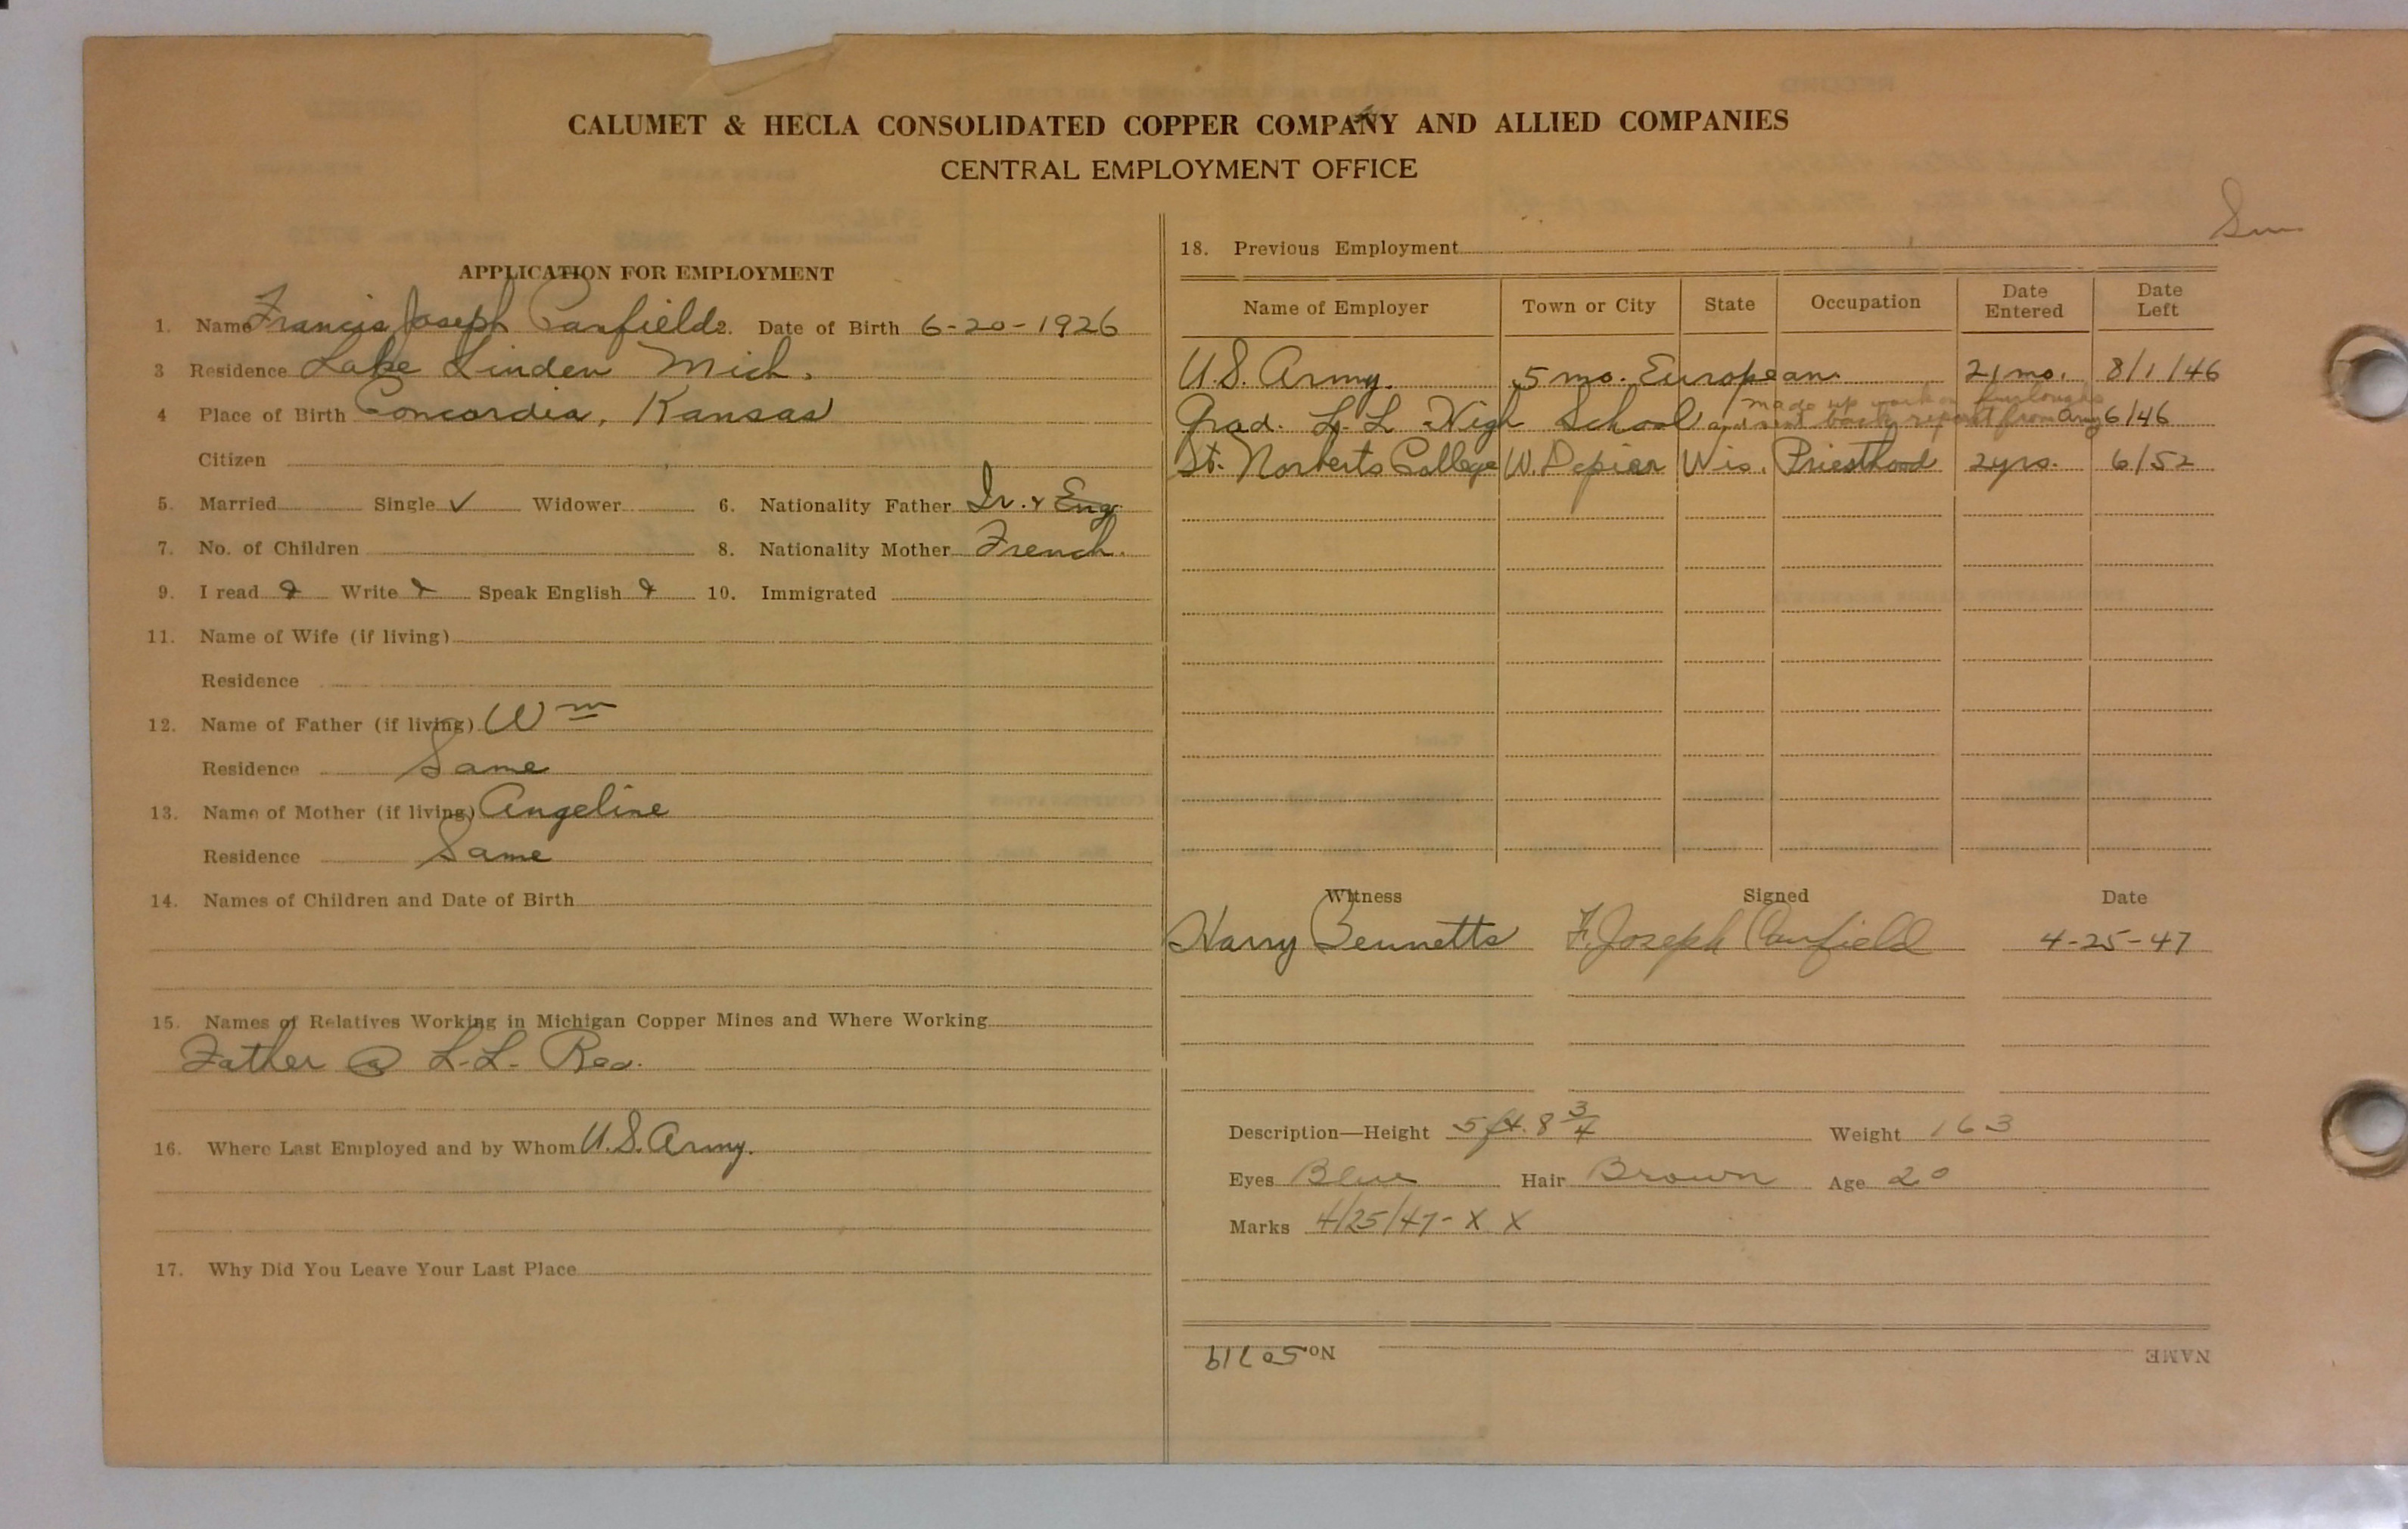 CALUMET & HECLA CONSOLIDATED COPPER COMPANY AND ALLIED COMPANIES
CENTRAL EMPLOYMENT OFFICE
APPLICATION FOR EMPLOYMENT
1. Name Francis Joseph Canfield 2. Date of Birth 6-20-1926
3 Residence Lake Linden Mich.
4 Place of Birth Concordia, Kansas
Citizen
5. Married Single ✓ Widower 6. Nationality Father Ir. & Eng.
7. No. of Children 8. Nationality Mother French.
9. I read Write Speak English 10. Immigrated
11. Name of Wife (if living)
Residence
12. Name of Father (if living) Wm
Residence Same
13. Name of Mother (if living) Angeline
Residence Same
14. Names of Children and Date of Birth
15. Names of Relatives Working in Michigan Copper Mines and Where Working
Father @ L.L. Rec.
16. Where Last Employed and by Whom U.S. Army.
17. Why Did You Leave Your Last Place
18. Previous Employment
Name of Employer Town or City State Occupation Date Entered Date Left
U.S. Army. 5 mo. European. 21 mo. 8/1/46
made up work on furloughs
Grad. L.L. High School and sent back report from Army 6/46
St. Norberts College W. Depier Wis. Priesthood 2 yrs. 6/52
Witness Signed Date
Harry Bennetts F. Joseph Canfield 4-25-47
Description—Height 5 ft. 8 3/4 Weight 163
Eyes Blue Hair Brown Age 20
Marks 4/25/47- X X
NAME No. 50719